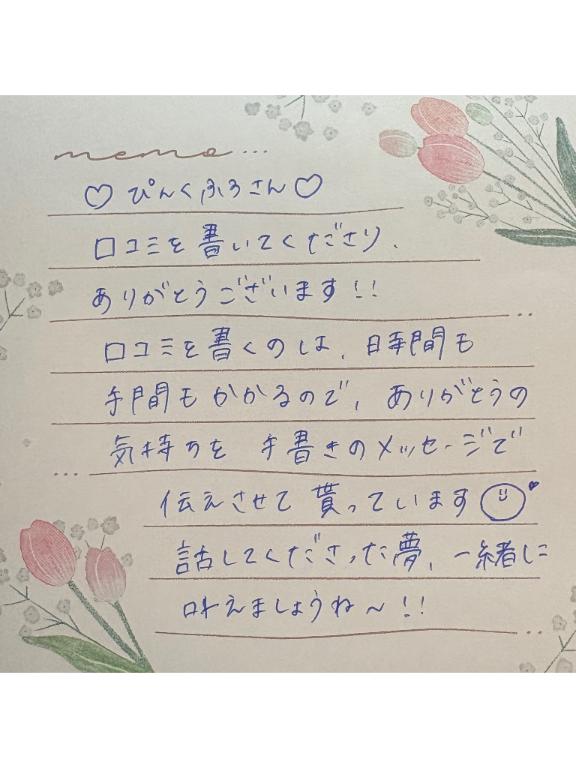 memo...
♡ぴんくふろさん♡
口コミを書いてくださり、
ありがとうございます!!
口コミを書くのは、時間も
手間もかかるので、ありがとうの
気持ちを 手書きのメッセージで
伝えさせて貰っています
話してくださった夢、一緒に
叶えましょうね〜!!